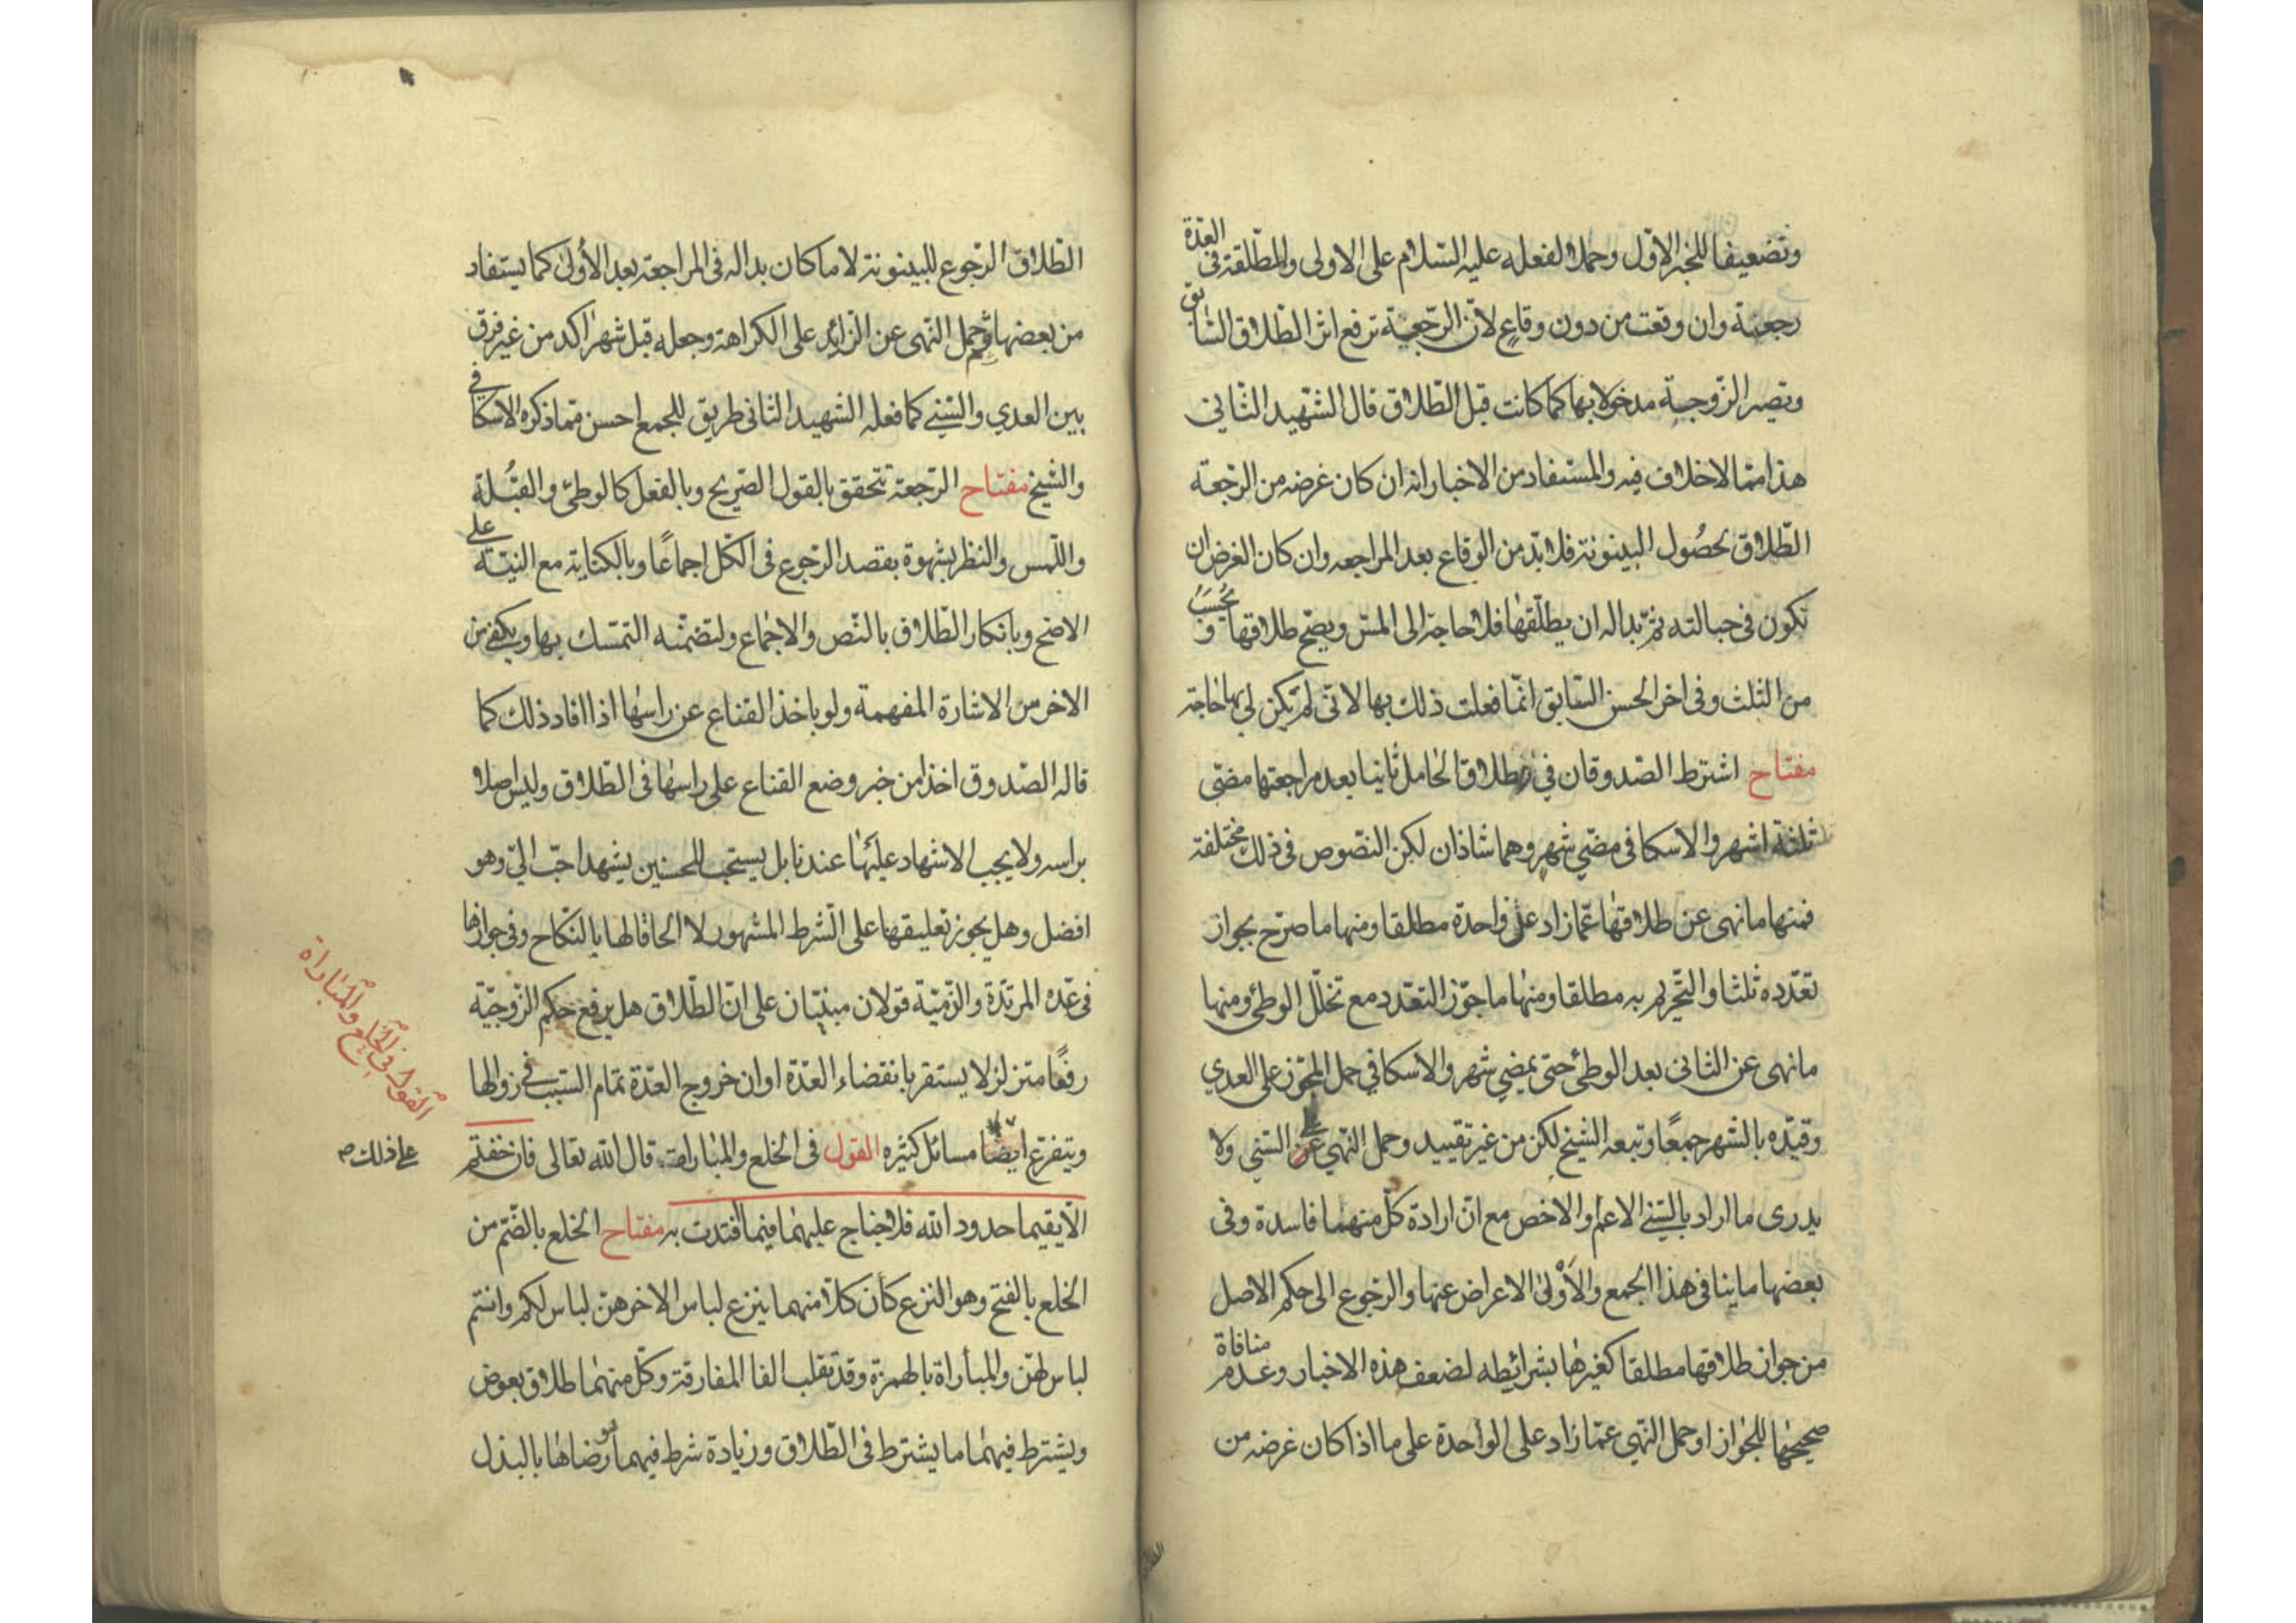 وتضعيفا للخبر الاول وحملا لفعله عليه السلام على الاولى والمطلقة في العدة
رجعية وان وقعت من دون وقاع لان الرجعية ترفع اثر الطلاق السابق
وتصير الزوجية مدخولا بها كما كانت قبل الطلاق قال الشهيد الثاني
هذا مما لا خلاف فيه والمستفاد من الاخبار انه ان كان غرضه من الرجعة
الطلاق لحصول البينونة فلا بد من الوقاع بعد المراجعه وان كان الغرض ان
تكون في حبالته ثم بدا له ان يطلقها فلا حاجة الى المس ويصح طلاقها ويحسب
من الثلث وفي اخر الحسن السابق انما فعلت ذلك بها لانى لم تكن لي بها حاجة
مفتاح اشترط الصدوقان في طلاق الحامل ثانيا بعد مراجعتها مضى
ثلثة اشهر والاسكافى مضى شهر وهما شاذان لكن النصوص فى ذلك مختلفة
فمنها ما نهى عن طلاقها عما زاد على واحدة مطلقا ومنها ما صرح بجواز
تعدده ثلثا والتحريم به مطلقا ومنها ما جوز التعدد مع تخلل الوطئ ومنها
ما نهى عن الثانى بعد الوطئ حتى يمضى شهر والاسكافي حمل المجوز على العدي
وقيده بالشهر جمعًا وتبعه الشيخ لكن من غير تقييد وحمل النهي على السني ولا
يدرى ما اراد بالسني الاعم او الاخص مع ان ارادة كل منهما فاسدة وفى
بعضها ما ينافى هذا الجمع والأولى الاعراض عنها والرجوع الى حكم الاصل
من جواز طلاقها مطلقا كغيرها بشرائطه لضعف هذه الاخبار وعدم منافاة
صحيحها للجواز او حمل النهي عما زاد على الواحدة على ما اذا كان غرضه من
الطلاق الرجوع للبينونة لا ما كان بدا له فى المراجعة بعد الأولى كما يستفاد
من بعضها ثم حمل النهى عن الزائد على الكراهة وجعله قبل شهر اكد من غير فرق
بين العدي والسني كما فعله الشهيد الثانى طريق للجمع احسن مما ذكره الاسكافي
والشيخ مفتاح الرجعة تتحقق بالقول الصريح وبالفعل كالوطئ والقبلة
واللمس والنظر بشهوة بقصد الرجوع فى الكل اجماعًا وبالكناية مع النية على
الاصح وبانكار الطلاق بالنص والاجماع ولتضمنه التمسك بها ويكفى من
الاخرس الاشارة المفهمة ولو باخذ القناع عن راسها اذا افاد ذلك كما
قاله الصدوق اخذا من خبر وضع القناع على راسها فى الطلاق وليس اصلا
براسه ولا يجب الاشهاد عليها عندنا بل يستحب للحسنين يشهد احب الي وهو
افضل وهل يجوز تعليقها على الشرط المشهور لا الحاقا لها بالنكاح وفى جوازها
فى عده المرتدة والذمية قولان مبنيان على ان الطلاق هل يرفع حكم الزوجية
رفعًا متزلزلا يستقر بانقضاء العدة او ان خروج العدة تمام السبب فى زوالها
ويتفرع على ذلك ايضا مسائل كثيره القول فى الخلع والمباراة قال الله تعالى فان خفتم
الا يقيما حدود الله فلا جناح عليهما فيما افتدت به مفتاح الخلع بالضم من
الخلع بالفتح وهو النزع كأن كلا منهما ينزع لباس الاخر هن لباس لكم وانتم
لباس لهن والمبأراة بالهمزة وقد تقلب الفا المفارقة وكل منهما طلاق بعوض
ويشترط فيهما ما يشترط فى الطلاق وزيادة شرط فيهما هو رضاها بالبذل
القول في الخلع والمباراة
على ذلك صح